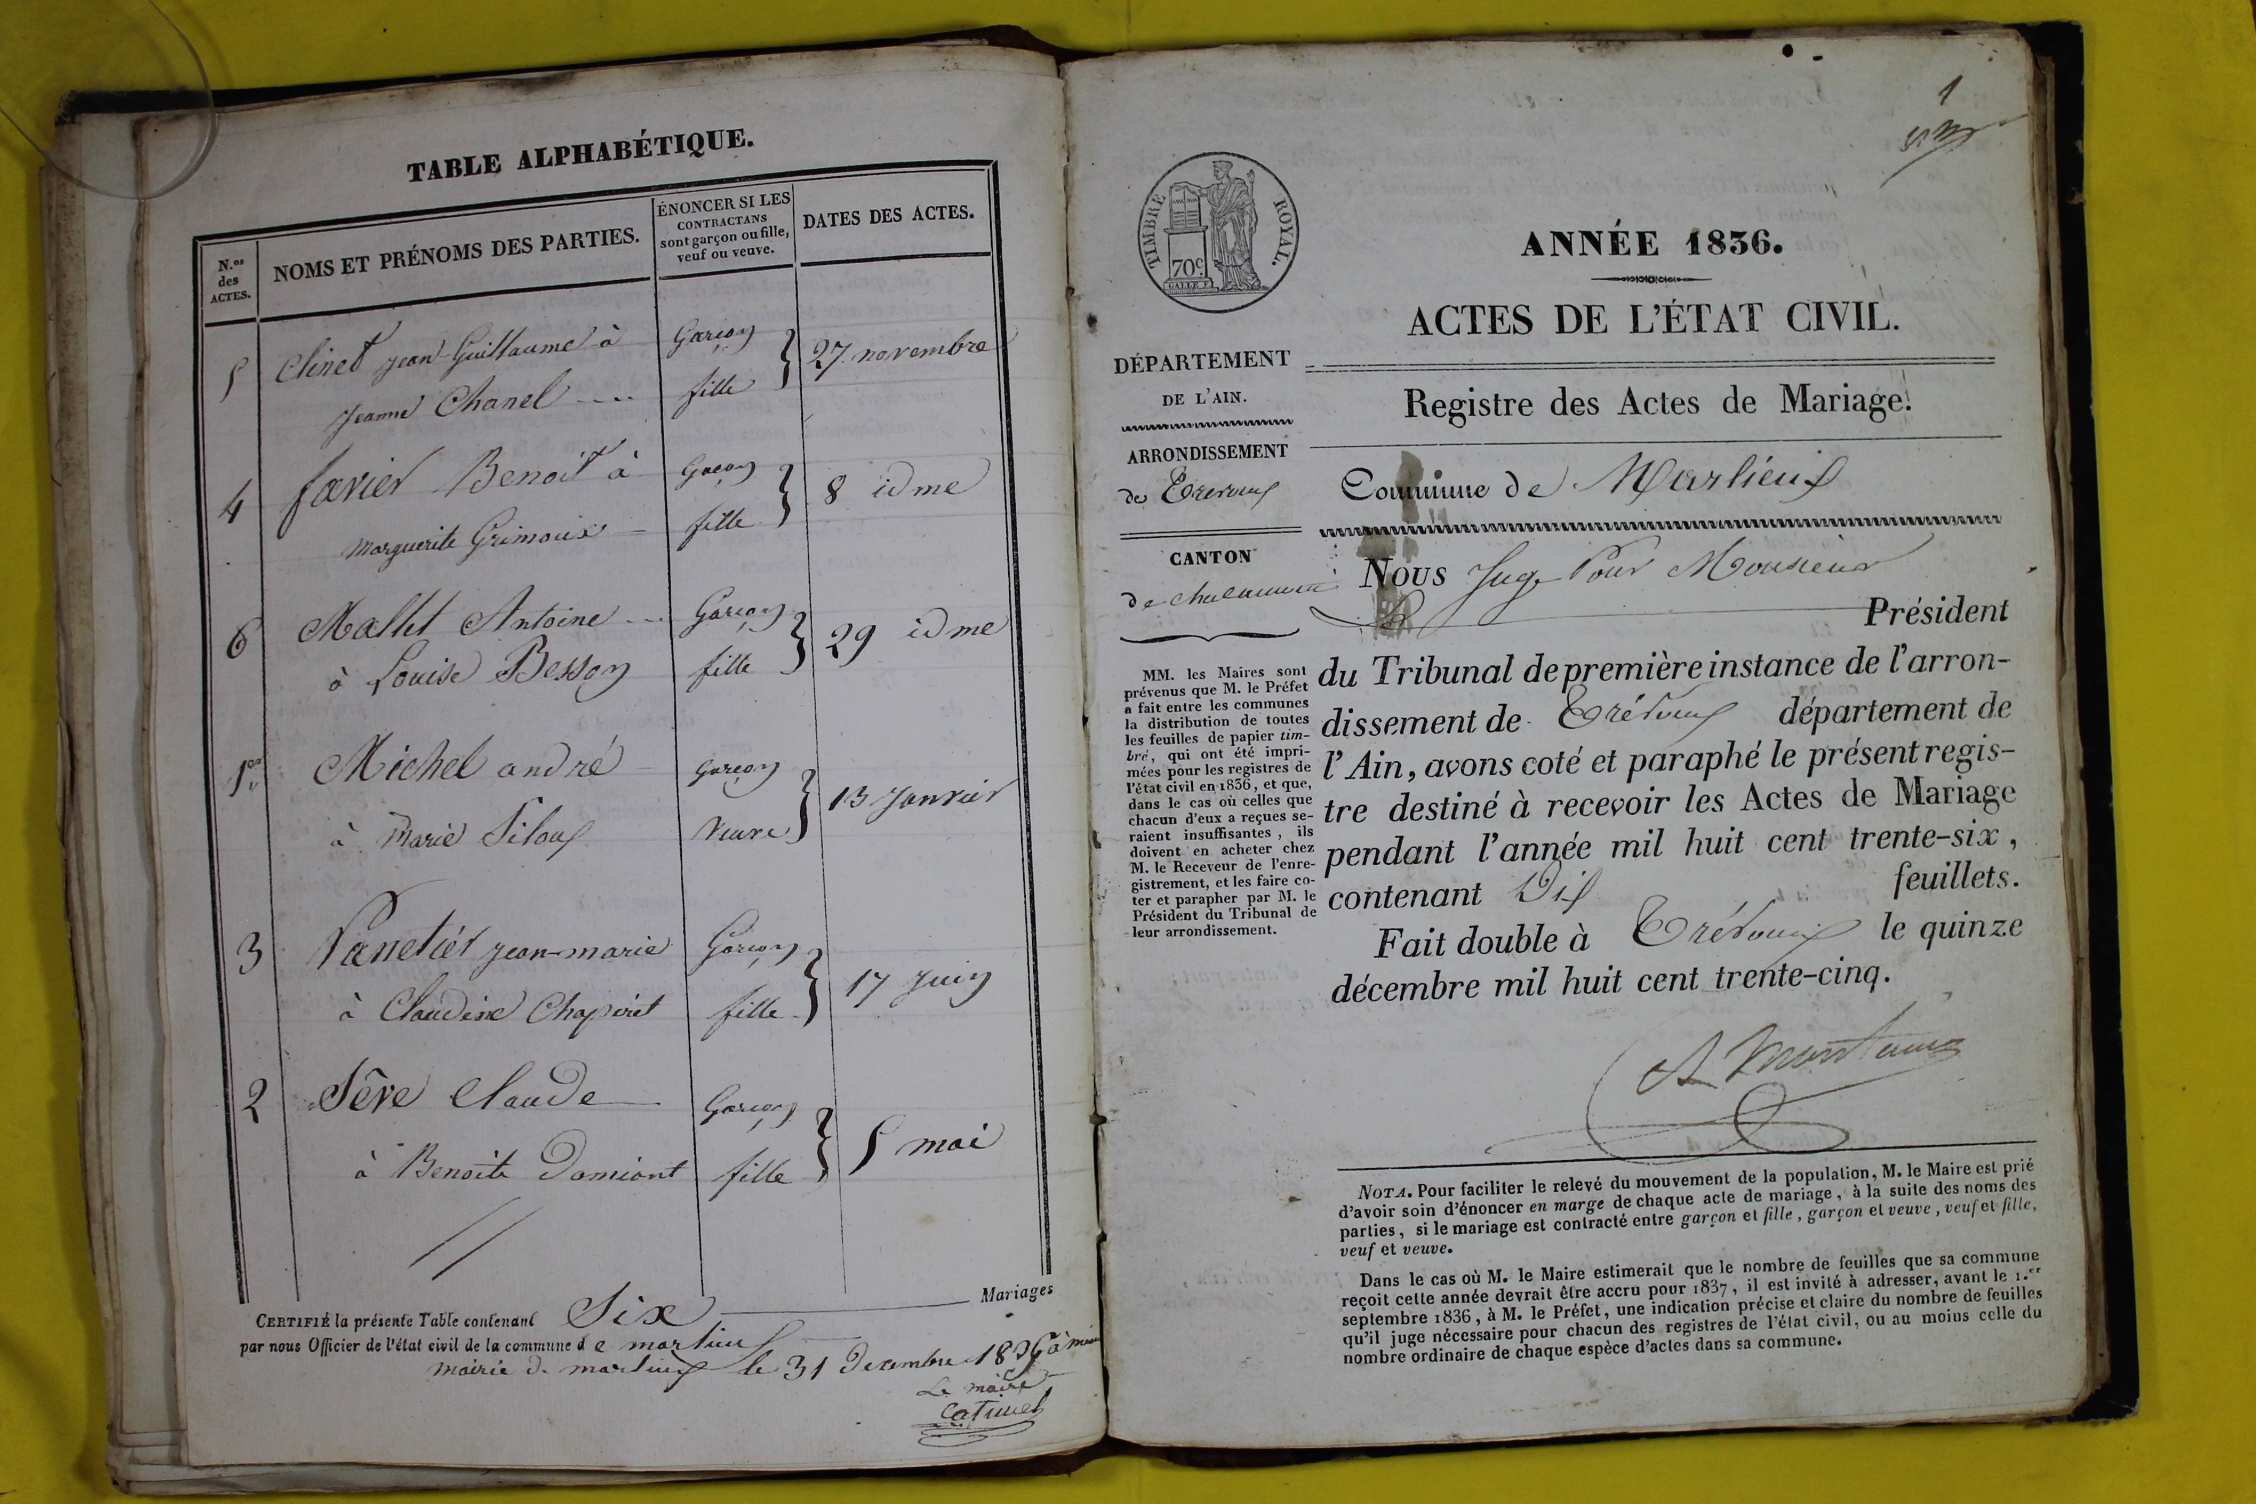 TABLE ALPHABÉTIQUE.
N.os des ACTES.
NOMS ET PRÉNOMS DES PARTIES.
ÉNONCER SI LES
CONTRACTANS
sont garçon ou fille,
veuf ou veuve.
DATES DES ACTES.
5 Clinet jean Guillaume à Garçon
Jeanne Chanel fille 27 novembre
4 favier Benoit à Garçon
Marguerite Grimoux fille 8 idme
6 Mallet Antoine Garçon
à Louise Besson fille 29 idme
1er Michel andré garçon
à Marie Siloux Veuve 13 Janvier
3 Panetier jean-marie Garçon
à Claudine Chapiret fille 17 Juin
2 Sêve Claude Garçon
à Benoite Damiont fille 5 mai
CERTIFIÉ la présente Table contenant Six Mariages
par nous Officier de l'état civil de la commune de marlieux
mairie de marlieux le 31 Decembre 1836 à
Le maire
Catimel
1
TIMBRE ROYAL.
70c
ANNÉE 1836.
ACTES DE L'ÉTAT CIVIL.
Registre des Actes de Mariage.
DÉPARTEMENT
DE L'AIN.
ARRONDISSEMENT
de Trevoux
CANTON
de chalamont
MM. les Maires sont
prévenus que M. le Préfet
a fait entre les communes
la distribution de toutes
les feuilles de papier tim-
bré, qui ont été impri-
mées pour les registres de
l'état civil en 1836, et que,
dans le cas où celles que
chacun d'eux a reçues se-
raient insuffisantes, ils
doivent en acheter chez
M. le Receveur de l'enre-
gistrement, et les faire co-
ter et parapher par M. le
Président du Tribunal de
leur arrondissement.
Commune de Marlieux
Nous Juge Pour Monsieur
Le Président
du Tribunal de première instance de l'arron-
dissement de Trévoux département de
l'Ain, avons coté et paraphé le présent regis-
tre destiné à recevoir les Actes de Mariage
pendant l'année mil huit cent trente-six,
contenant Dix feuillets.
Fait double à Trévoux le quinze
décembre mil huit cent trente-cinq.
NOTA. Pour faciliter le relevé du mouvement de la population, M. le Maire est prié
d'avoir soin d'énoncer en marge de chaque acte de mariage, à la suite des noms des
parties, si le mariage est contracté entre garçon et fille, garçon et veuve, veuf et fille,
veuf et veuve.
Dans le cas où M. le Maire estimerait que le nombre de feuilles que sa commune
reçoit cette année devrait être accru pour 1837, il est invité à adresser, avant le 1.er
septembre 1836, à M. le Préfet, une indication précise et claire du nombre de feuilles
qu'il juge nécessaire pour chacun des registres de l'état civil, ou au moins celle du
nombre ordinaire de chaque espèce d'actes dans sa commune.